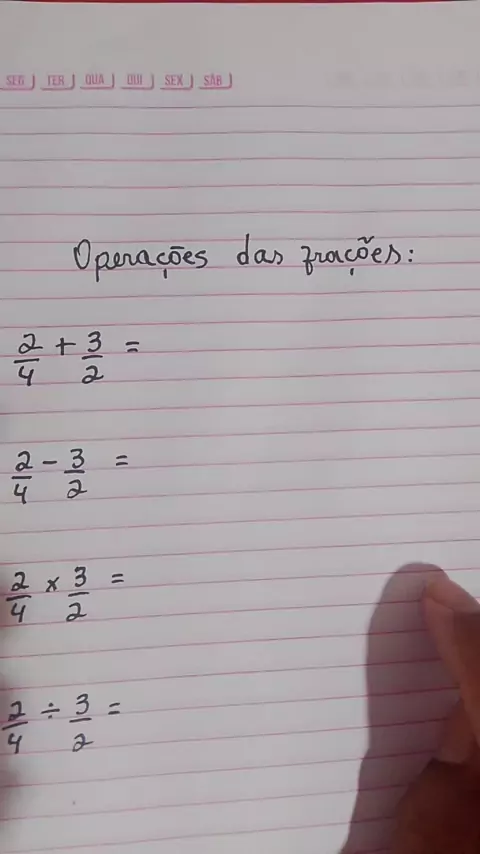 SEG TER QUA QUI SEX SÁB
Operações das frações:
2/4 + 3/2 =
2/4 - 3/2 =
2/4 × 3/2 =
2/4 ÷ 3/2 =